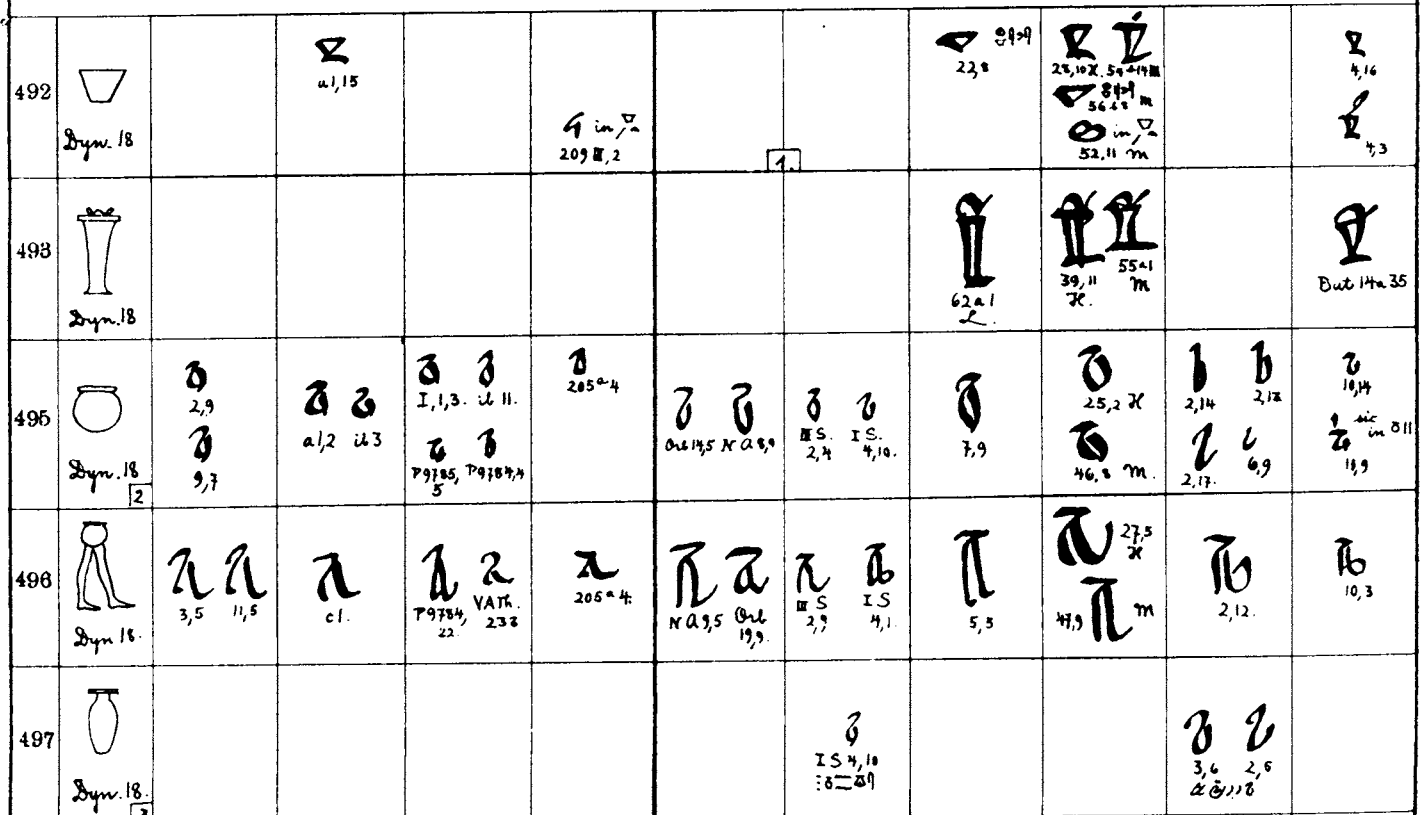 492
Dyn. 18
a1,15
in
209 III, 2
1.
22,8
28,10 H.
56
m
in
52,11 m
4,16
4,3
493
Dyn. 18
62a1
L.
39,11
H.
55a1
m
But 14a 35
495
Dyn. 18
2
2,9
9,7
a1,2 ib 3
I,1,3. ib 11.
P9785,
5
P9784,4
205a 4
Orb 14,5 NA 8,9
III S.
2,4
I S.
4,10.
7,9
25,2 H
46,8 m.
2,14 2,12
2,17. 6,9
10,14
sic
in 811
11,9
496
Dyn 18.
3,5 11,5
c1.
P9784,
22.
VATh.
233
205a 4.
NA 9,5
Orb
19,9.
III S
2,9
I S
4,1.
5,5
27,5
H
47,9 m
2,12.
10,3
497
Dyn. 18.
I S 4,10
3,6 2,6